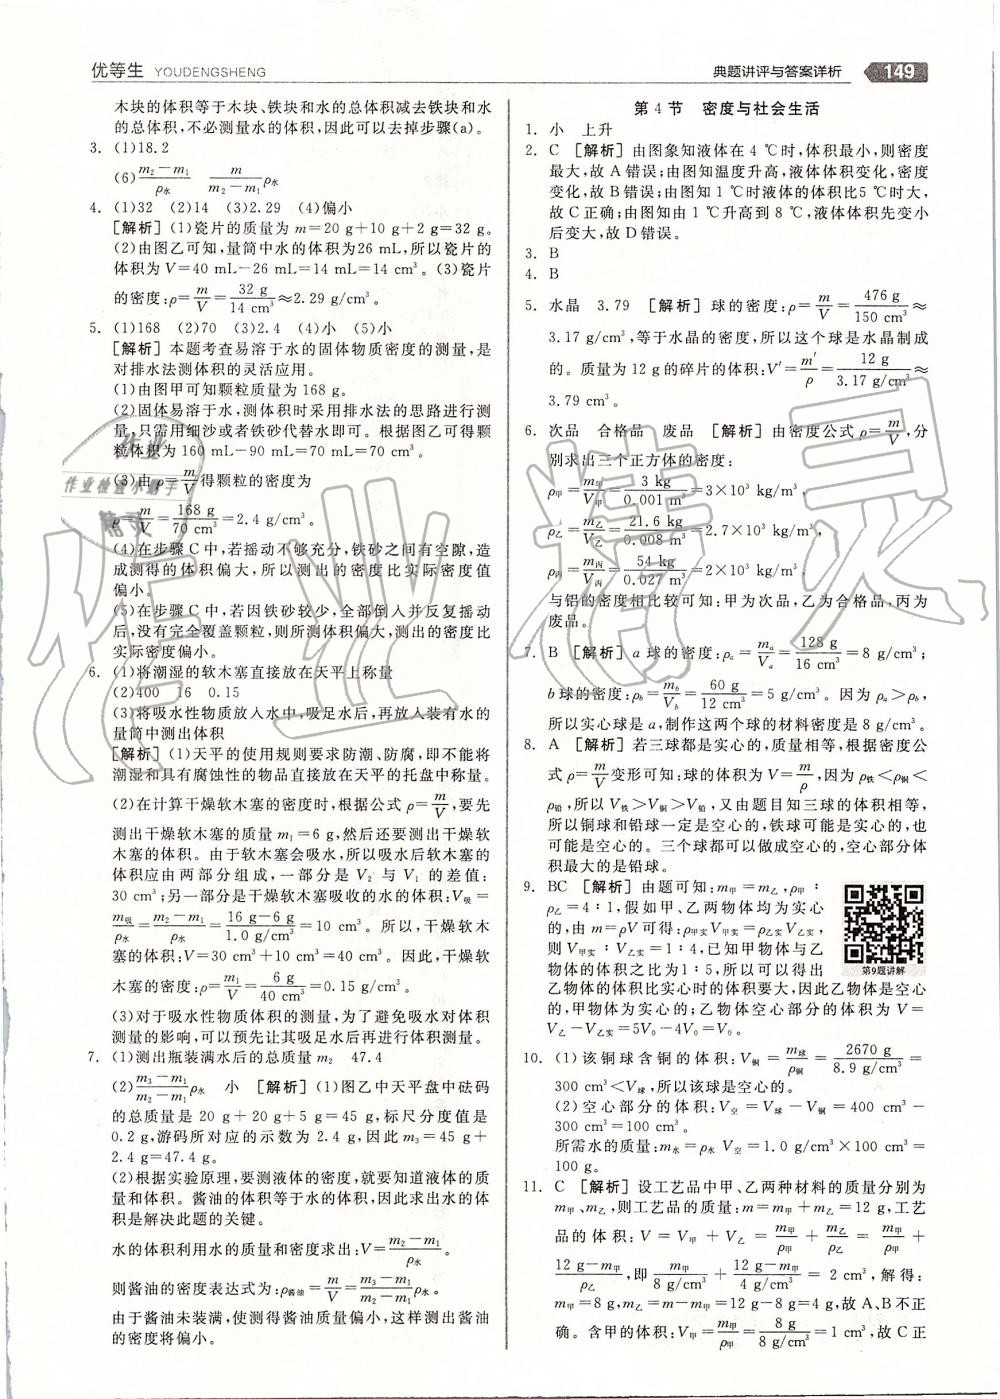 优等生 YOUDENGSHENG
典题讲评与答案详析 149
木块的体积等于木块、铁块和水的总体积减去铁块和水
的总体积,不必测量水的体积,因此可以去掉步骤(a)。
3. (1)18.2
(6)(m₂−m₁)/ρ水 m/(m₂−m₁)ρ水
4. (1)32 (2)14 (3)2.29 (4)偏小
[解析] (1)瓷片的质量为 m=20 g+10 g+2 g=32 g。
(2)由图乙可知,量筒中水的体积为26 mL,所以瓷片的
体积为 V=40 mL−26 mL=14 mL=14 cm³。(3)瓷片
的密度:ρ=m/V=32 g/14 cm³≈2.29 g/cm³。
5. (1)168 (2)70 (3)2.4 (4)小 (5)小
[解析] 本题考查易溶于水的固体物质密度的测量,是
对排水法测体积的灵活应用。
(1)由图甲可知颗粒质量为 168 g。
(2)固体易溶于水,测体积时采用排水法的思路进行测
量,只需用细沙或者铁砂代替水即可。根据图乙可得颗
粒体积为 160 mL−90 mL=70 mL=70 cm³。
(3)由 ρ=m/V得颗粒的密度为
ρ=m/V=168 g/70 cm³=2.4 g/cm³。
(4)在步骤 C 中,若摇动不够充分,铁砂之间有空隙,造
成测得的体积偏大,所以测出的密度比实际密度值
偏小。
(5)在步骤 C 中,若因铁砂较少,全部倒入并反复摇动
后,没有完全覆盖颗粒,则所测体积偏大,测出的密度比
实际密度偏小。
6. (1)将潮湿的软木塞直接放在天平上称量
(2)400 16 0.15
(3)将吸水性物质放入水中,吸足水后,再放入装有水的
量筒中测出体积
[解析] (1)天平的使用规则要求防潮、防腐,即不能将
潮湿和具有腐蚀性的物品直接放在天平的托盘中称量。
(2)在计算干燥软木塞的密度时,根据公式 ρ=m/V,要先
测出干燥软木塞的质量 m₁=6 g,然后还要测出干燥软
木塞的体积。由于软木塞会吸水,所以吸水后软木塞的
体积应由两部分组成,一部分是 V₂ 与 V₁ 的差值:
30 cm³;另一部分是干燥软木塞吸收的水的体积:V吸=
m吸/ρ水=(m₂−m₁)/ρ水=(16 g−6 g)/1.0 g/cm³=10 cm³。所以,干燥软木
塞的体积:V=30 cm³+10 cm³=40 cm³。因此,干燥软
木塞的密度:ρ=m/V=6 g/40 cm³=0.15 g/cm³。
(3)对于吸水性物质体积的测量,为了避免吸水对体积
测量的影响,可以预先让其吸足水后再进行体积测量。
7. (1)测出瓶装满水后的总质量 m₂ 47.4
(2)(m₃−m₁)/(m₂−m₁)ρ水 小 [解析] (1)图乙中天平盘中砝码
的总质量是 20 g+20 g+5 g=45 g,标尺分度值是
0.2 g,游码所对应的示数为 2.4 g,因此 m₃=45 g+
2.4 g=47.4 g。
(2)根据实验原理,要测液体的密度,就要知道液体的质
量和体积。酱油的体积等于水的体积,因此求出水的体
积是解决此题的关键。
水的体积利用水的质量和密度求出:V=(m₂−m₁)/ρ水。
则酱油的密度表达式为:ρ酱油=m/V=(m₃−m₁)/(m₂−m₁)ρ水。
由于酱油未装满,使测得酱油质量偏小,这样测出酱油
的密度将偏小。
第 4 节 密度与社会生活
1. 小 上升
2. C [解析] 由图象知液体在 4 ℃时,体积最小,则密度
最大,故 A 错误;由图知温度升高,液体体积变化,密度
变化,故 B 错误;由图知 1 ℃时液体的体积比5 ℃时大,
故 C 正确;由图知由 1 ℃升高到 8 ℃,液体体积先变小
后变大,故 D 错误。
3. B
4. B
5. 水晶 3.79 [解析] 球的密度:ρ=m/V=476 g/150 cm³≈
3.17 g/cm³,等于水晶的密度,所以这个球是水晶制成
的。质量为 12 g的碎片的体积:V′=m′/ρ=12 g/3.17 g/cm³≈
3.79 cm³。
6. 次品 合格品 废品 [解析] 由密度公式 ρ=m/V,分
别求出三个正方体的密度:
ρ甲=m甲/V甲=3 kg/0.001 m³=3×10³ kg/m³,
ρ乙=m乙/V乙=21.6 kg/0.008 m³=2.7×10³ kg/m³,
ρ丙=m丙/V丙=54 kg/0.027 m³=2×10³ kg/m³,
与铝的密度相比较可知:甲为次品,乙为合格品,丙为
废品。
7. B [解析] a 球的密度:ρₐ=mₐ/Vₐ=128 g/16 cm³=8 g/cm³;
b球的密度:ρb=mb/Vb=60 g/12 cm³=5 g/cm³。因为 ρₐ>ρb,
所以实心球是 a,制作这两个球的材料密度是 8 g/cm³。
8. A [解析] 若三球都是实心的,质量相等,根据密度公
式 ρ=m/V变形可知:球的体积为 V=m/ρ,因为 ρ铁<ρ铜<
ρ铅,所以 V铁>V铜>V铅,又由题目知三球的体积相等,
所以铜球和铅球一定是空心的,铁球可能是实心的,也
可能是空心的。三个球都可以做成空心的,空心部分体
积最大的是铅球。
9. BC [解析] 由题可知:m甲=m乙,ρ甲∶
ρ乙=4∶1,假如甲、乙两物体均为实心
的,由 m=ρV 可得:ρ甲实V甲实=ρ乙实V乙实,
则 V甲实∶V乙实=1∶4,已知甲物体与乙
物体的体积之比为1∶5,所以可以得出
乙物体的体积比实心时的体积要大,因此乙物体是空心
的,甲物体为实心的;乙物体空心部分的体积为 V=
V乙−V乙实=5V₀−4V₀=V₀。
第9题讲解
10. (1)该铜球含铜的体积:V铜=m球/ρ铜=2670 g/8.9 g/cm³=
300 cm³<V球,所以该球是空心的。
(2)空心部分的体积:V空=V球−V铜=400 cm³−
300 cm³=100 cm³。
所需水的质量:m水=ρ水 V空=1.0 g/cm³×100 cm³=
100 g。
11. C [解析] 设工艺品中甲、乙两种材料的质量分别为
m甲、m乙,则工艺品的质量:m=m甲+m乙=12 g,工艺
品的体积:V=V甲+V乙=m甲/ρ甲+m乙/ρ乙=m甲/ρ甲+
(12 g−m甲)/ρ乙,即m甲/8 g/cm³+(12 g−m甲)/4 g/cm³=2 cm³,解得:
m甲=8 g,m乙=m−m甲=12 g−8 g=4 g,故 A、B 不正
确。含甲的体积:V甲=m甲/ρ甲=8 g/8 g/cm³=1 cm³,故 C 正
作业精灵
作业检查小助手